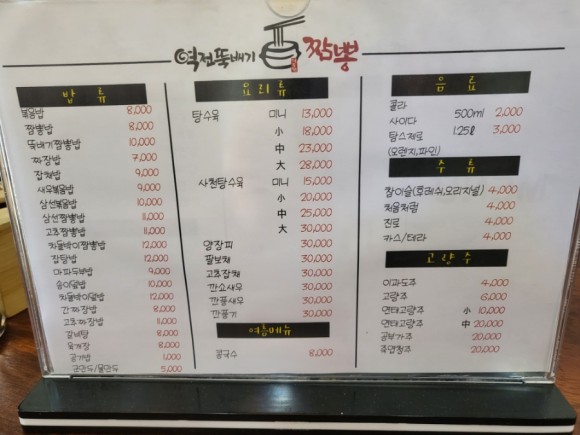 역전뚝배기 짬뽕
밥 류
볶음밥 8,000
짬뽕밥 8,000
뚝배기짬뽕밥 10,000
짜장밥 7,000
잡채밥 9,000
새우볶음밥 9,000
삼선볶음밥 10,000
삼선짬뽕밥 11,000
고추짬뽕밥 11,000
차돌박이짬뽕밥 12,000
잡탕밥 12,000
마파두부밥 9,000
송이덮밥 10,000
차돌박이덮밥 12,000
간짜장밥 8,000
고추짜장밥 11,000
갈비탕 8,000
육개장 8,000
공기밥 1,000
군만두/물만두 5,000
요리류
탕수육 미니 13,000
小 18,000
中 23,000
大 28,000
사천탕수육 미니 15,000
小 20,000
中 25,000
大 30,000
양장피 30,000
팔보채 30,000
고추잡채 30,000
깐쇼새우 30,000
깐풍새우 30,000
깐풍기 30,000
여름메뉴
콩국수 8,000
음 료
콜라
사이다 500ml 2,000
탐스제로 1.25ℓ 3,000
(오렌지,파인)
주 류
참이슬(후레쉬,오리지널) 4,000
처음처럼 4,000
진로 4,000
카스/테라 4,000
고량주
이과두주 4,000
고량주 6,000
연태고량주 小 10,000
연태고량주 中 20,000
공부가주 20,000
죽엽청주 20,000